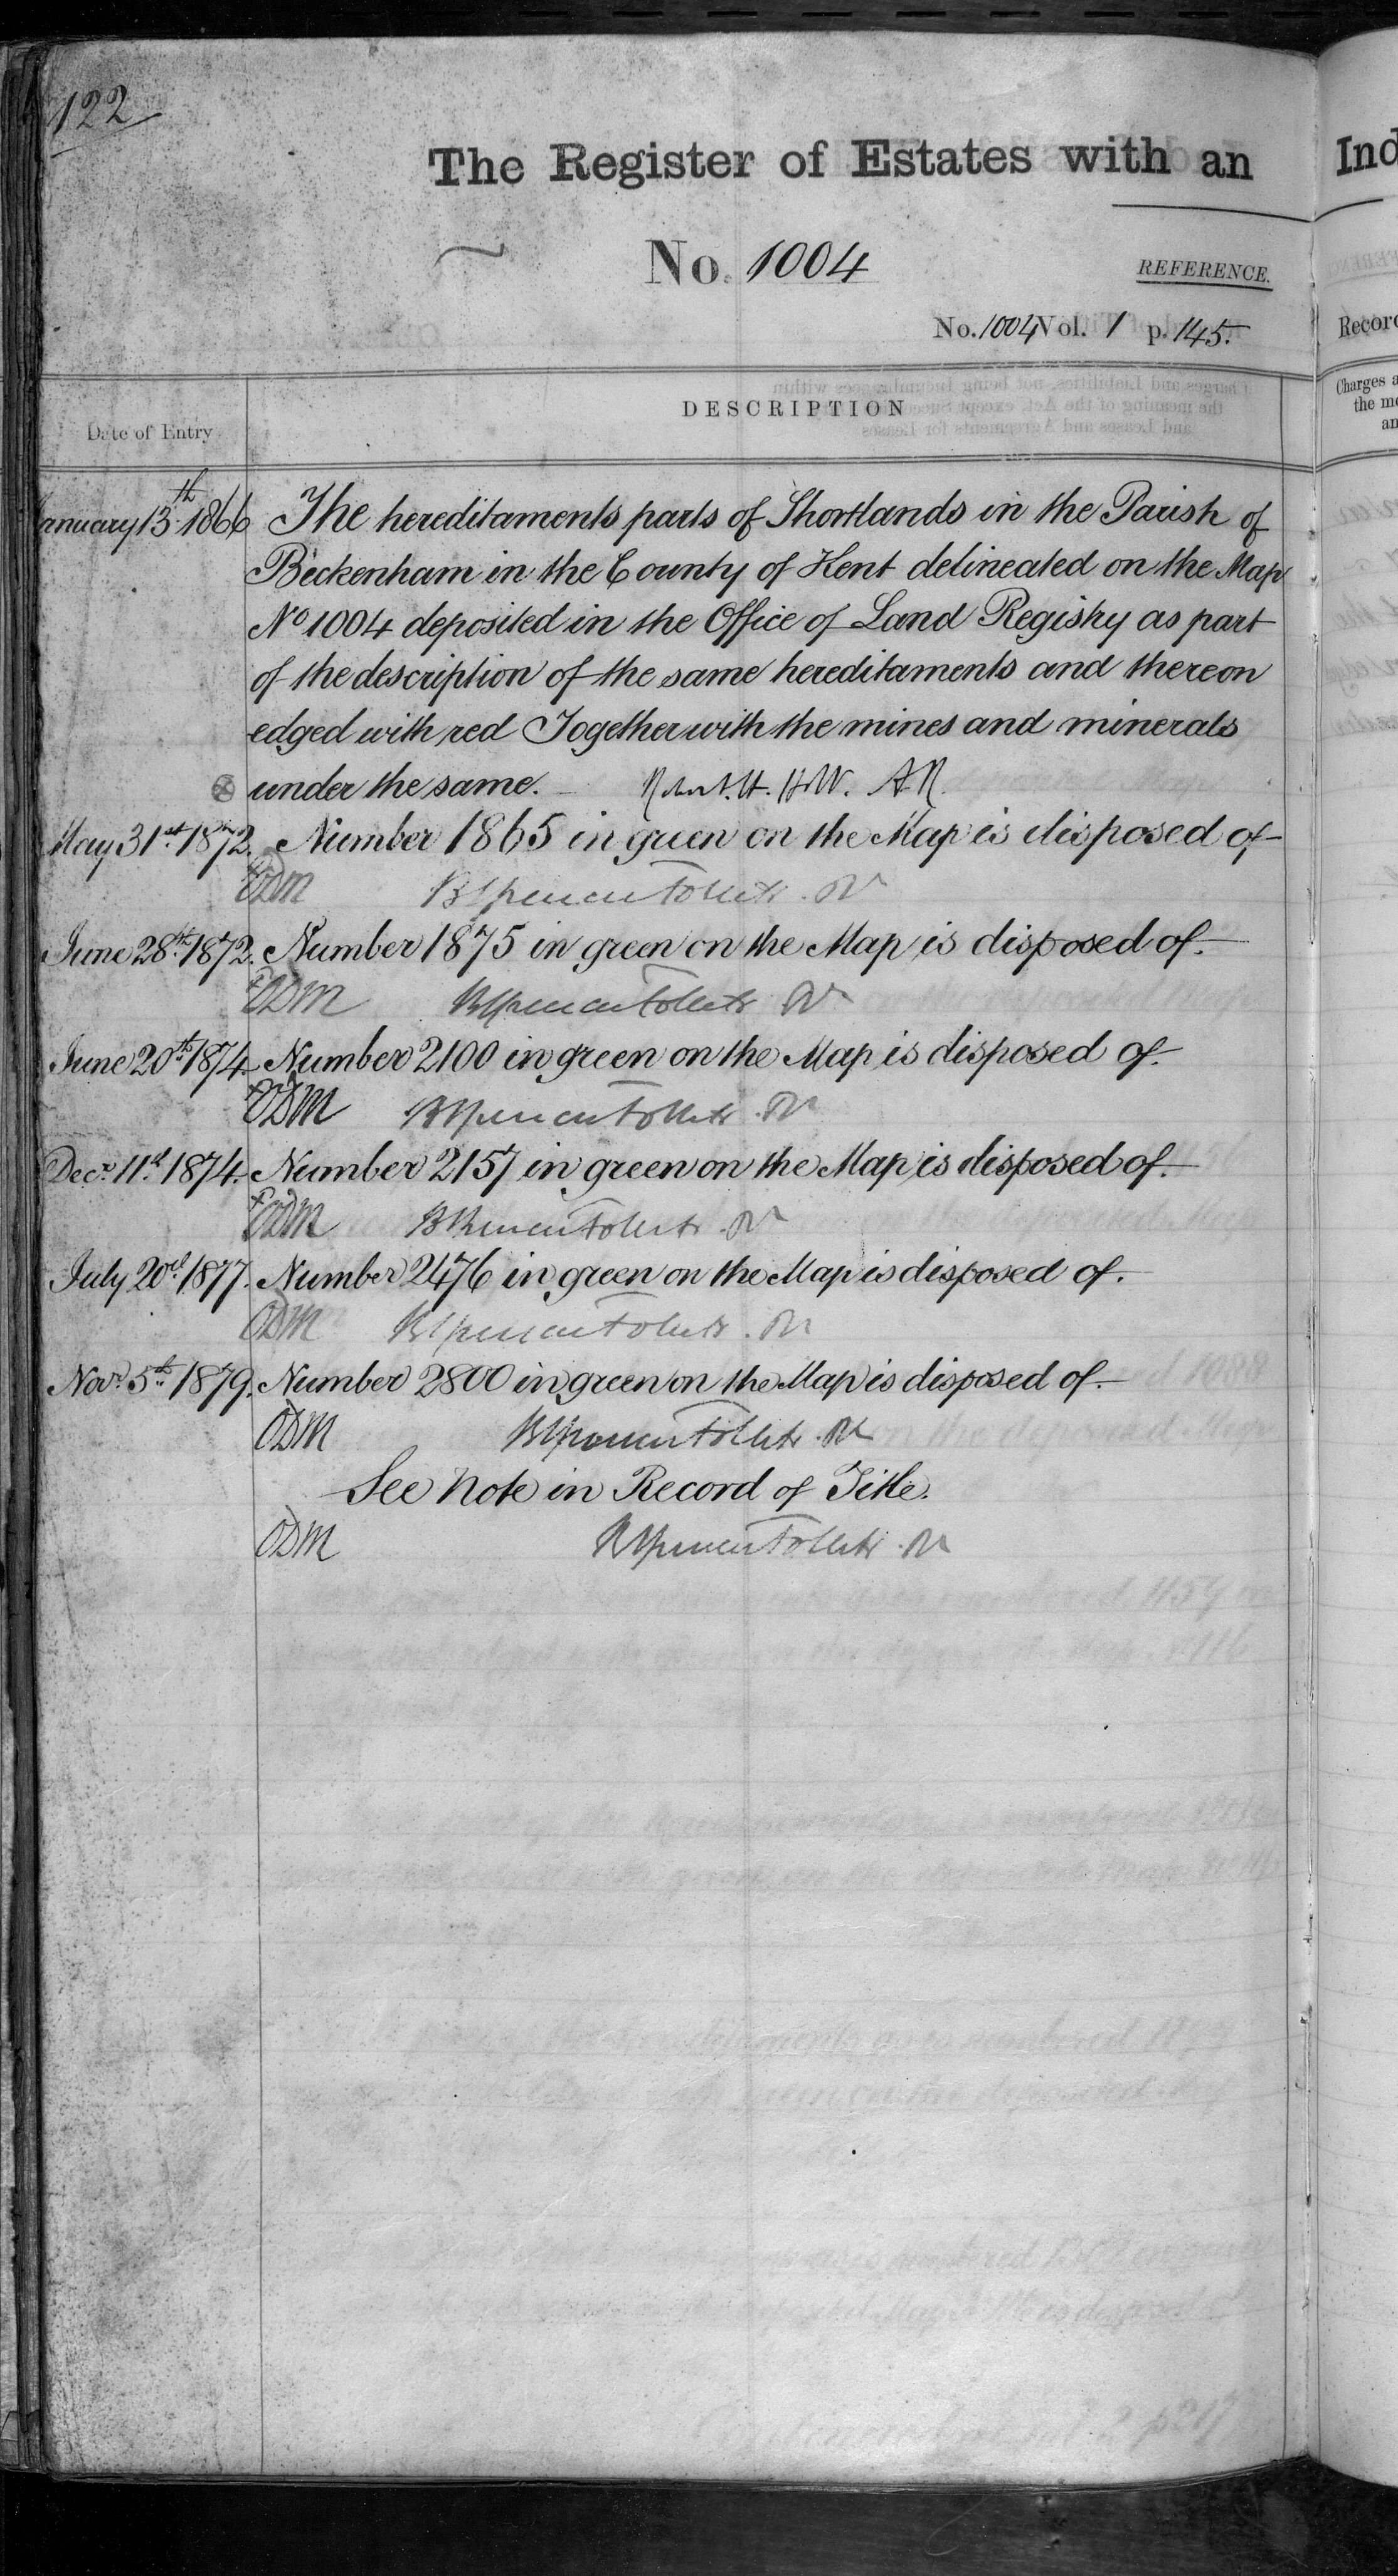 122
The Register of Estates with an Ind
No. 1004
REFERENCE.
No. 1004 Vol. 1 p. 145.
Record
Date of Entry
DESCRIPTION
Charges a
the me
an
January 13th 1866 The hereditaments parts of Shortlands in the Parish of
Beckenham in the County of Kent delineated on the Map
No 1004 deposited in the Office of Land Registry as part
of the description of the same hereditaments and thereon
edged with red Together with the mines and minerals
under the same. Robert. H. Holt. A.R.
May 31st 1872. Number 1865 in green on the Map is disposed of
ODM
June 28th 1872. Number 1875 in green on the Map is disposed of.
ODM
June 20th 1874 Number 2100 in green on the Map is disposed of.
ODM
Decr. 11th 1874. Number 2157 in green on the Map is disposed of.
ODM
July 20th 1877. Number 2476 in green on the Map is disposed of.
ODM
Novr. 5th 1879. Number 2800 in green on the Map is disposed of.
ODM
See Note in Record of Title.
ODM